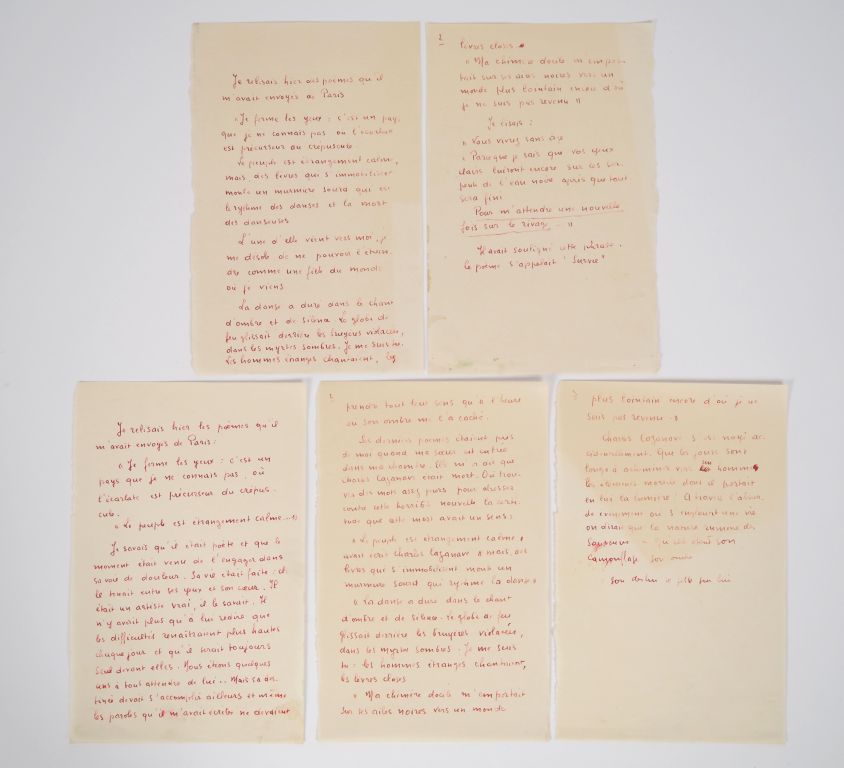 Je relisais hier des poèmes qu'il
m'avait envoyés de Paris
"Je ferme les yeux : c'est un pays
que je ne connais pas où l'écarlate
est précurseur du crépuscule.
Le peuple est étrangement calme,
mais des lèvres qui s'immobilisent
monte un murmure sourd qui est
le rythme des danses et la mort
des danseuses
L'une d'elle vient vers moi, je
me désole de ne pouvoir l'étein-
dre comme une fille du monde
où je viens
La danse a duré dans le chant
d'ombre et de silence. Le globe de
feu glissait derrière les bruyères violacées,
dans les myrtes sombres. Je me suis tu.
Les hommes étranges chantaient, les
2
lèvres closes.
"Ma chimère double m'empor-
tait sur ses ailes noires vers un
monde plus lointain encore d'où
je ne suis pas revenu"
Je lisais :
"Vous vivrez sans âge
"Parce que je sais que vos yeux
clairs luiront encore sur les ser-
de l'eau noire après que tout
sera fini
Pour m'attendre une nouvelle
fois sur le rivage - "
Il avait souligné cette phrase.
Le poème s'appelait "Survie"
Je relisais hier les poèmes qu'il
m'avait envoyés de Paris :
"Je ferme les yeux : c'est un
pays que je ne connais pas, où
l'écarlate est précurseur du crépus-
cule.
"Le peuple est étrangement calme...")
Je savais qu'il était poète et que le
moment était venu de l'engager dans
sa voie de douleur. Sa vie était faite : il
le tenait entre ses yeux et son cœur. Il
était un artiste vrai, il le savait. Il
n'y avait plus qu'à lui redire que
les difficultés renaîtraient plus hautes
chaque jour et qu'il serait toujours
seul devant elles. Nous étions quelques
uns à tout attendre de lui... Mais sa des-
tinée devait s'accomplir ailleurs et même
les paroles qu'il m'avait écrites ne devaient
prendre tout leur sens qu'à l'heure
où son ombre me l'a caché.
Les derniers poèmes étaient près
de moi quand ma sœur est entrée
dans ma chambre. Elle m'a dit que
Charles Cazanave était mort. Où trou-
ver des mots assez purs pour dresser
contre cette horrible nouvelle la certi-
tude que cette mort avait un sens :
"Le peuple est étrangement calme"
avait écrit Charles Cazanave "mais des
lèvres qui s'immobilisent monte un
murmure sourd qui rythme la danse"
"La danse a duré dans le chant
d'ombre et de silence. Le globe de feu
glissait derrière les bruyères violacées,
dans les myrtes sombres. Je me suis
tu : les hommes étranges chantaient,
les lèvres closes
"Ma chimère double m'emportait
sur ses ailes noires vers un monde
3
plus lointain encore d'où je ne
suis pas revenu - "
Charles Cazanave s'est noyé ac-
cidentellement. Que les jours sont
longs à acheminer vers un homme
les éléments mortels dont il portait
en lui la lumière. A travers l'absur-
de on dirait que la nature
son
son ombre
son destin